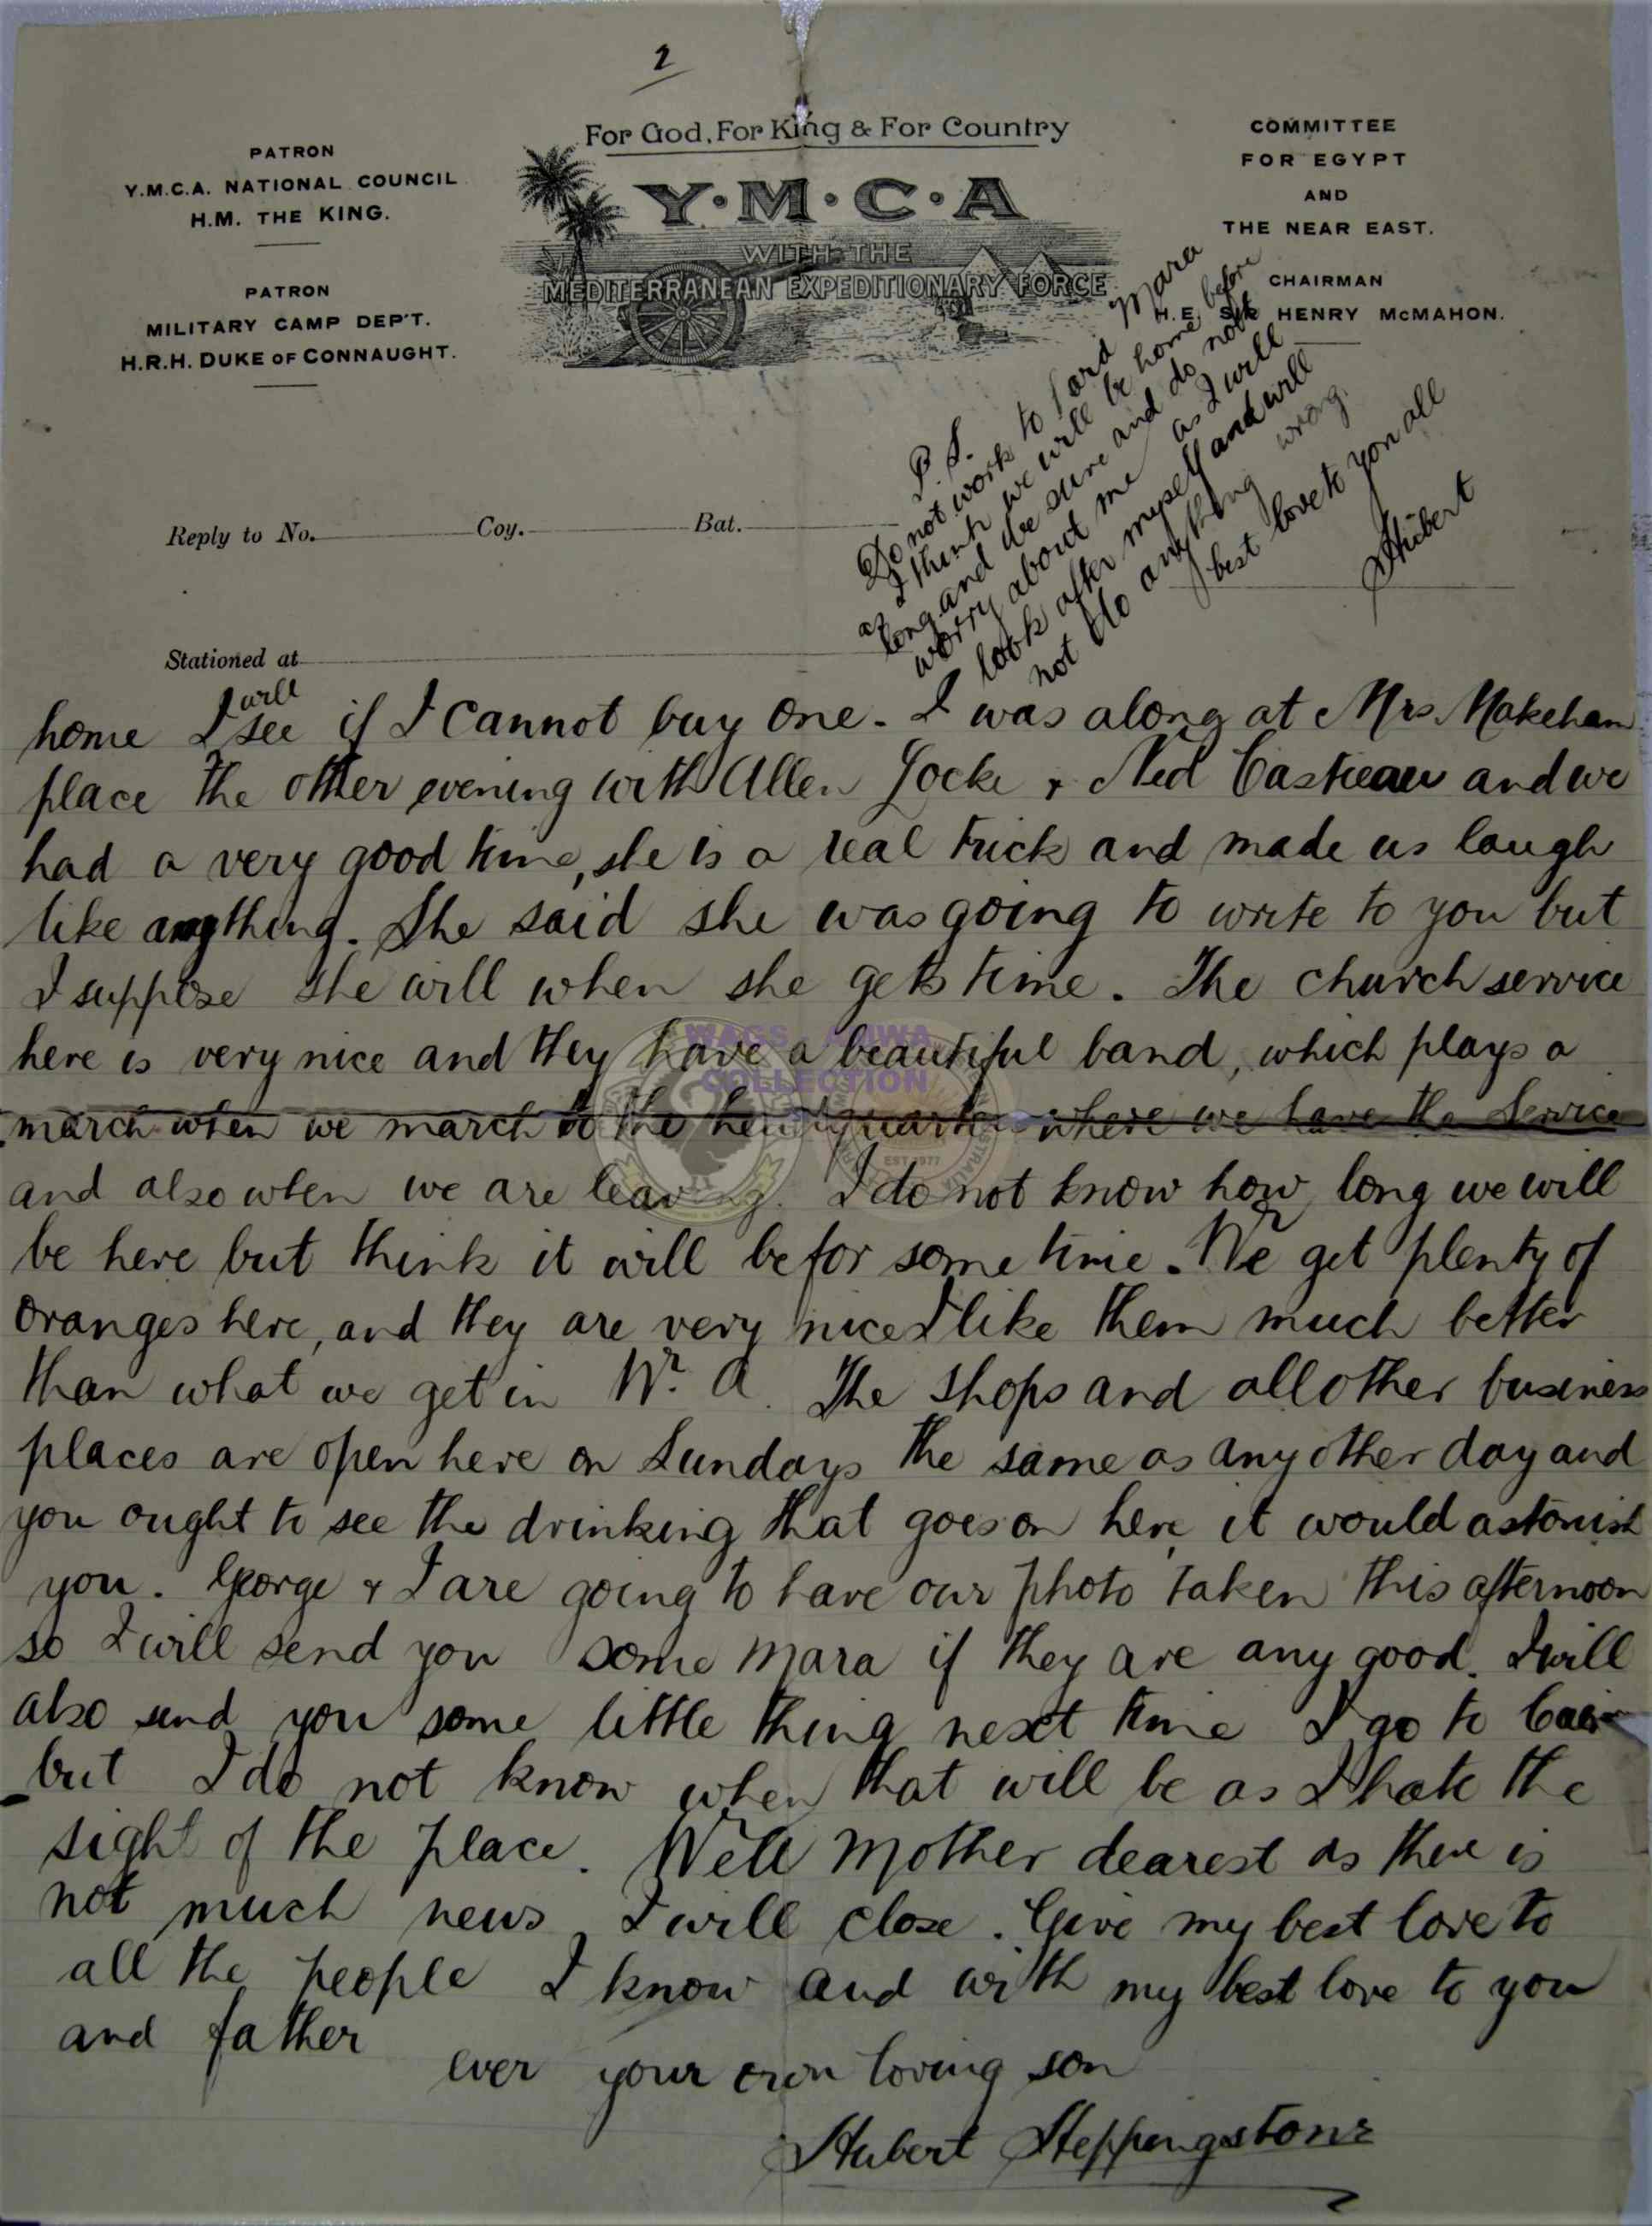 2
For God, For King & For Country
Y.M.C.A
WITH THE
MEDITERRANEAN EXPEDITIONARY FORCE
PATRON
Y.M.C.A. NATIONAL COUNCIL
H.M. THE KING.
PATRON
MILITARY CAMP DEP'T.
H.R.H. DUKE OF CONNAUGHT.
COMMITTEE
FOR EGYPT
AND
THE NEAR EAST.
CHAIRMAN
H.E. SIR HENRY McMAHON.
P.S.
Do not work to hard Mara
as I think we will be home before
long and be sure and do not
worry about me as I will
look after myself and will
not do anything wrong.
best love to you all
Hubert
Reply to No. Coy. Bat.
Stationed at
home I will see if I cannot buy one. I was along at Mrs. Makeham
place the other evening with Allen Locke & Ned Castieau and we
had a very good time, she is a real trick and made us laugh
like anything. She said she was going to write to you but
I suppose she will when she gets time. The church service
here is very nice and they have a beautiful band, which plays a
march when we march to the headquarters where we have the service
and also when we are leaving. I do not know how long we will
be here but think it will be for some time. We get plenty of
oranges here, and they are very nice I like them much better
than what we get in W. A. The shops and all other business
places are open here on Sundays the same as any other day and
you ought to see the drinking that goes on here, it would astonish
you. George & I are going to have our photo taken this afternoon
so I will send you some Mara if they are any good. I will
also send you some little thing next time I go to Cairo
but I do not know when that will be as I hate the
sight of the place. Well Mother dearest as there is
not much news I will close. Give my best love to
all the people I know and with my best love to you
and father
ever your own loving son
Hubert Steppingstone
WAGS - AMWA
COLLECTION
EST 1977